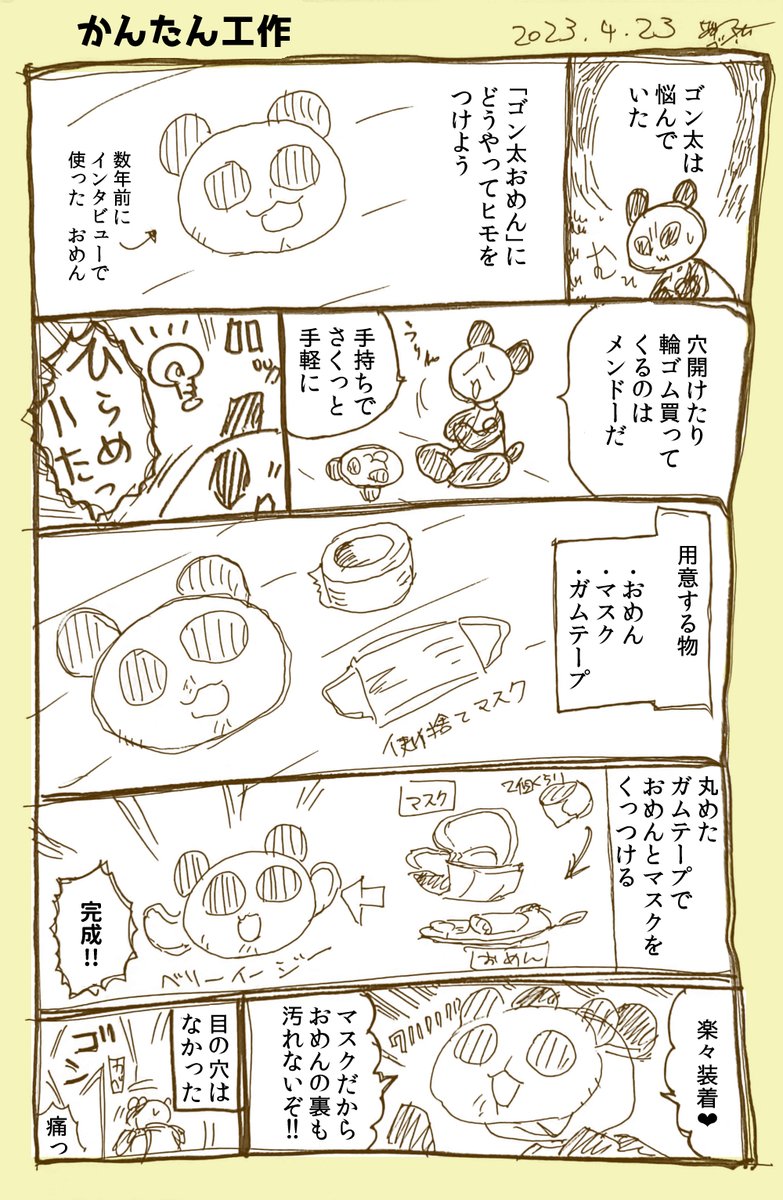 かんたん工作
2023.4.23
ゴン太は
悩んで
いた
む
「ゴン太おめん」に
どうやってヒモを
つけよう
数年前に
インタビューで
使った おめん
穴開けたり
輪ゴム買って
くるのは
メンドーだ
手持ちで
さくっと
手軽に
ひらめっ
いた
用意する物
・おめん
・マスク
・ガムテープ
使い捨てマスク
丸めた
ガムテープで
おめんとマスクを
くっつける
2個くらい
マスク
おめん
ベリーイージー
完成!!
楽々装着❤
マスクだから
おめんの裏も
汚れないぞ!!
目の穴は
なかった
ゴン
痛っ